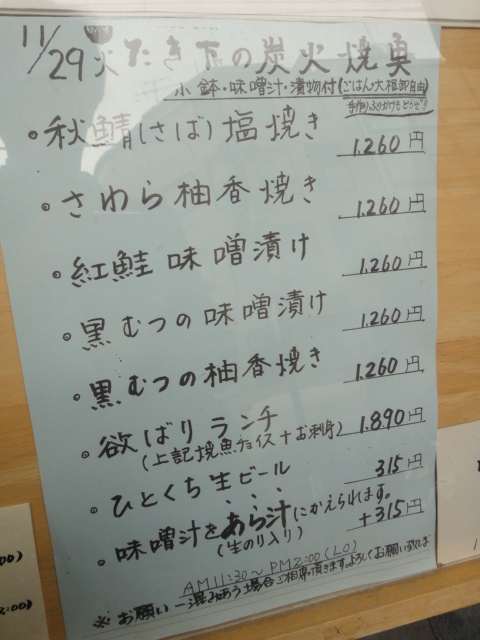 11/29 火 たき下の炭火焼奥
小鉢・味噌汁・漬物付(ごはん・大根卸自由)
手作りふりかけもどうぞ!!
秋鯖(さば)塩焼き 1.260円
さわら柚香焼き 1.260円
紅鮭味噌漬け 1.260円
黒むつの味噌漬け 1.260円
黒むつの柚香焼き 1.260円
欲ばりランチ 1.890円
(上記焼魚チョイス+お刺身)
ひとくち生ビール 315円
味噌汁をあら汁にかえられます。 +315円
(生のり入り)
AM11:30〜PM2:00(LO)
※お願い―混みあう場合ご相席頂きます。よろしくお願い致しま